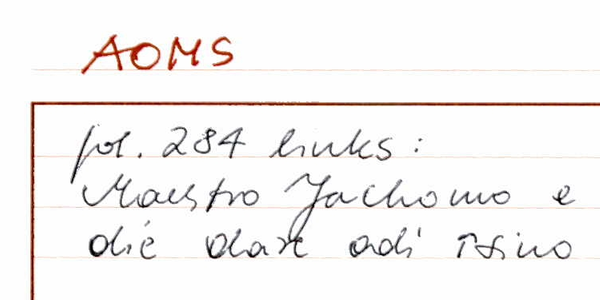 AOMS
fol. 284 links:
Maestro Jachomo e
die dare adi